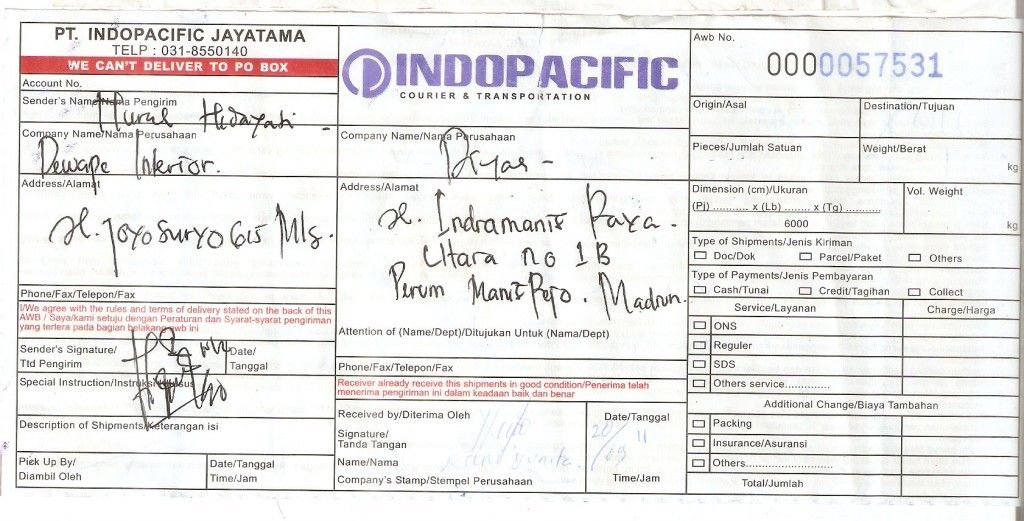 PT. INDOPACIFIC JAYATAMA
TELP : 031-8550140
WE CAN'T DELIVER TO PO BOX
Account No.
Sender's Name/Nama Pengirim
Nurul Hidayati -
Company Name/Nama Perusahaan
Dewape Interior.
Address/Alamat
Jl. Joyo Suryo 615 Mlg.
Phone/Fax/Telepon/Fax
I/We agree with the rules and terms of delivery stated on the back of this
AWB / Saya/kami setuju dengan Peraturan dan Syarat-syarat pengiriman
yang tertera pada bagian belakang awb ini
Sender's Signature/
Ttd Pengirim
Date/
Tanggal
Special Instruction/Instruksi Khusus
Description of Shipments/Keterangan isi
Pick Up By/
Diambil Oleh
Date/Tanggal
Time/Jam
INDOPACIFIC
COURIER & TRANSPORTATION
Company Name/Nama Perusahaan
Diyas -
Address/Alamat
Jl. Indramanis Raya.
Utara no 1B
Perum Manis Rejo. Madiun.
Attention of (Name/Dept)/Ditujukan Untuk (Name/Dept)
Phone/Fax/Telepon/Fax
Receiver already receive this shipments in good condition/Penerima telah
menerima pengiriman ini dalam keadaan baik dan benar
Received by/Diterima Oleh
Signature/
Tanda Tangan
Name/Nama
Company's Stamp/Stempel Perusahaan
Date/Tanggal
20/11
/09
Time/Jam
Awb No.
0000057531
Origin/Asal
Destination/Tujuan
Pieces/Jumlah Satuan
Weight/Berat
kg
Dimension (cm)/Ukuran
(Pj) ........... x (Lb) ........ x (Tg) ...........
6000
Vol. Weight
kg
Type of Shipments/Jenis Kiriman
Doc/Dok
Parcel/Paket
Others
Type of Payments/Jenis Pembayaran
Cash/Tunai
Credit/Tagihan
Collect
Service/Layanan
Charge/Harga
ONS
Reguler
SDS
Others service..............
Additional Change/Biaya Tambahan
Packing
Insurance/Asuransi
Others...............
Total/Jumlah